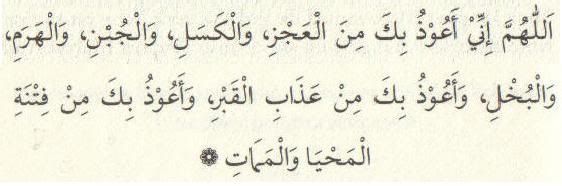 اَللّٰهُمَّ إِنِّيْ أَعُوْذُ بِكَ مِنَ الْعَجْزِ، وَالْكَسَلِ، وَالْجُبْنِ، وَالْهَرَمِ،
وَالْبُخْلِ، وَأَعُوْذُ بِكَ مِنْ عَذَابِ الْقَبْرِ، وَأَعُوْذُ بِكَ مِنْ فِتْنَةِ
الْمَحْيَا وَالْمَمَاتِ ۞